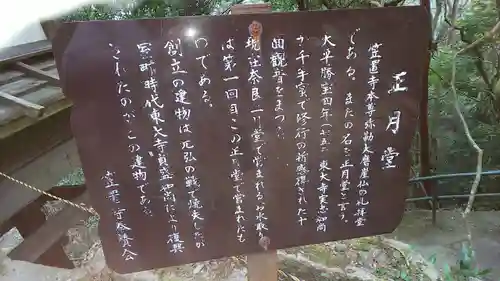 正月堂
笠置寺本尊弥勒大磨崖仏の礼拝堂
である。またの名を正月堂と言う。
天平勝宝四年(七五二)東大寺実忠和尚
が千手窟で修行の折感得された十一
面観音をまつる
現在奈良二月堂で営まれるお水取り
は第一回目をこの正月堂で営まれたも
のである。
創立の建物は元弘の戦で焼失したが
室町時代東大寺貞盛和尚により復興
されたのがこの建物である。
笠置寺